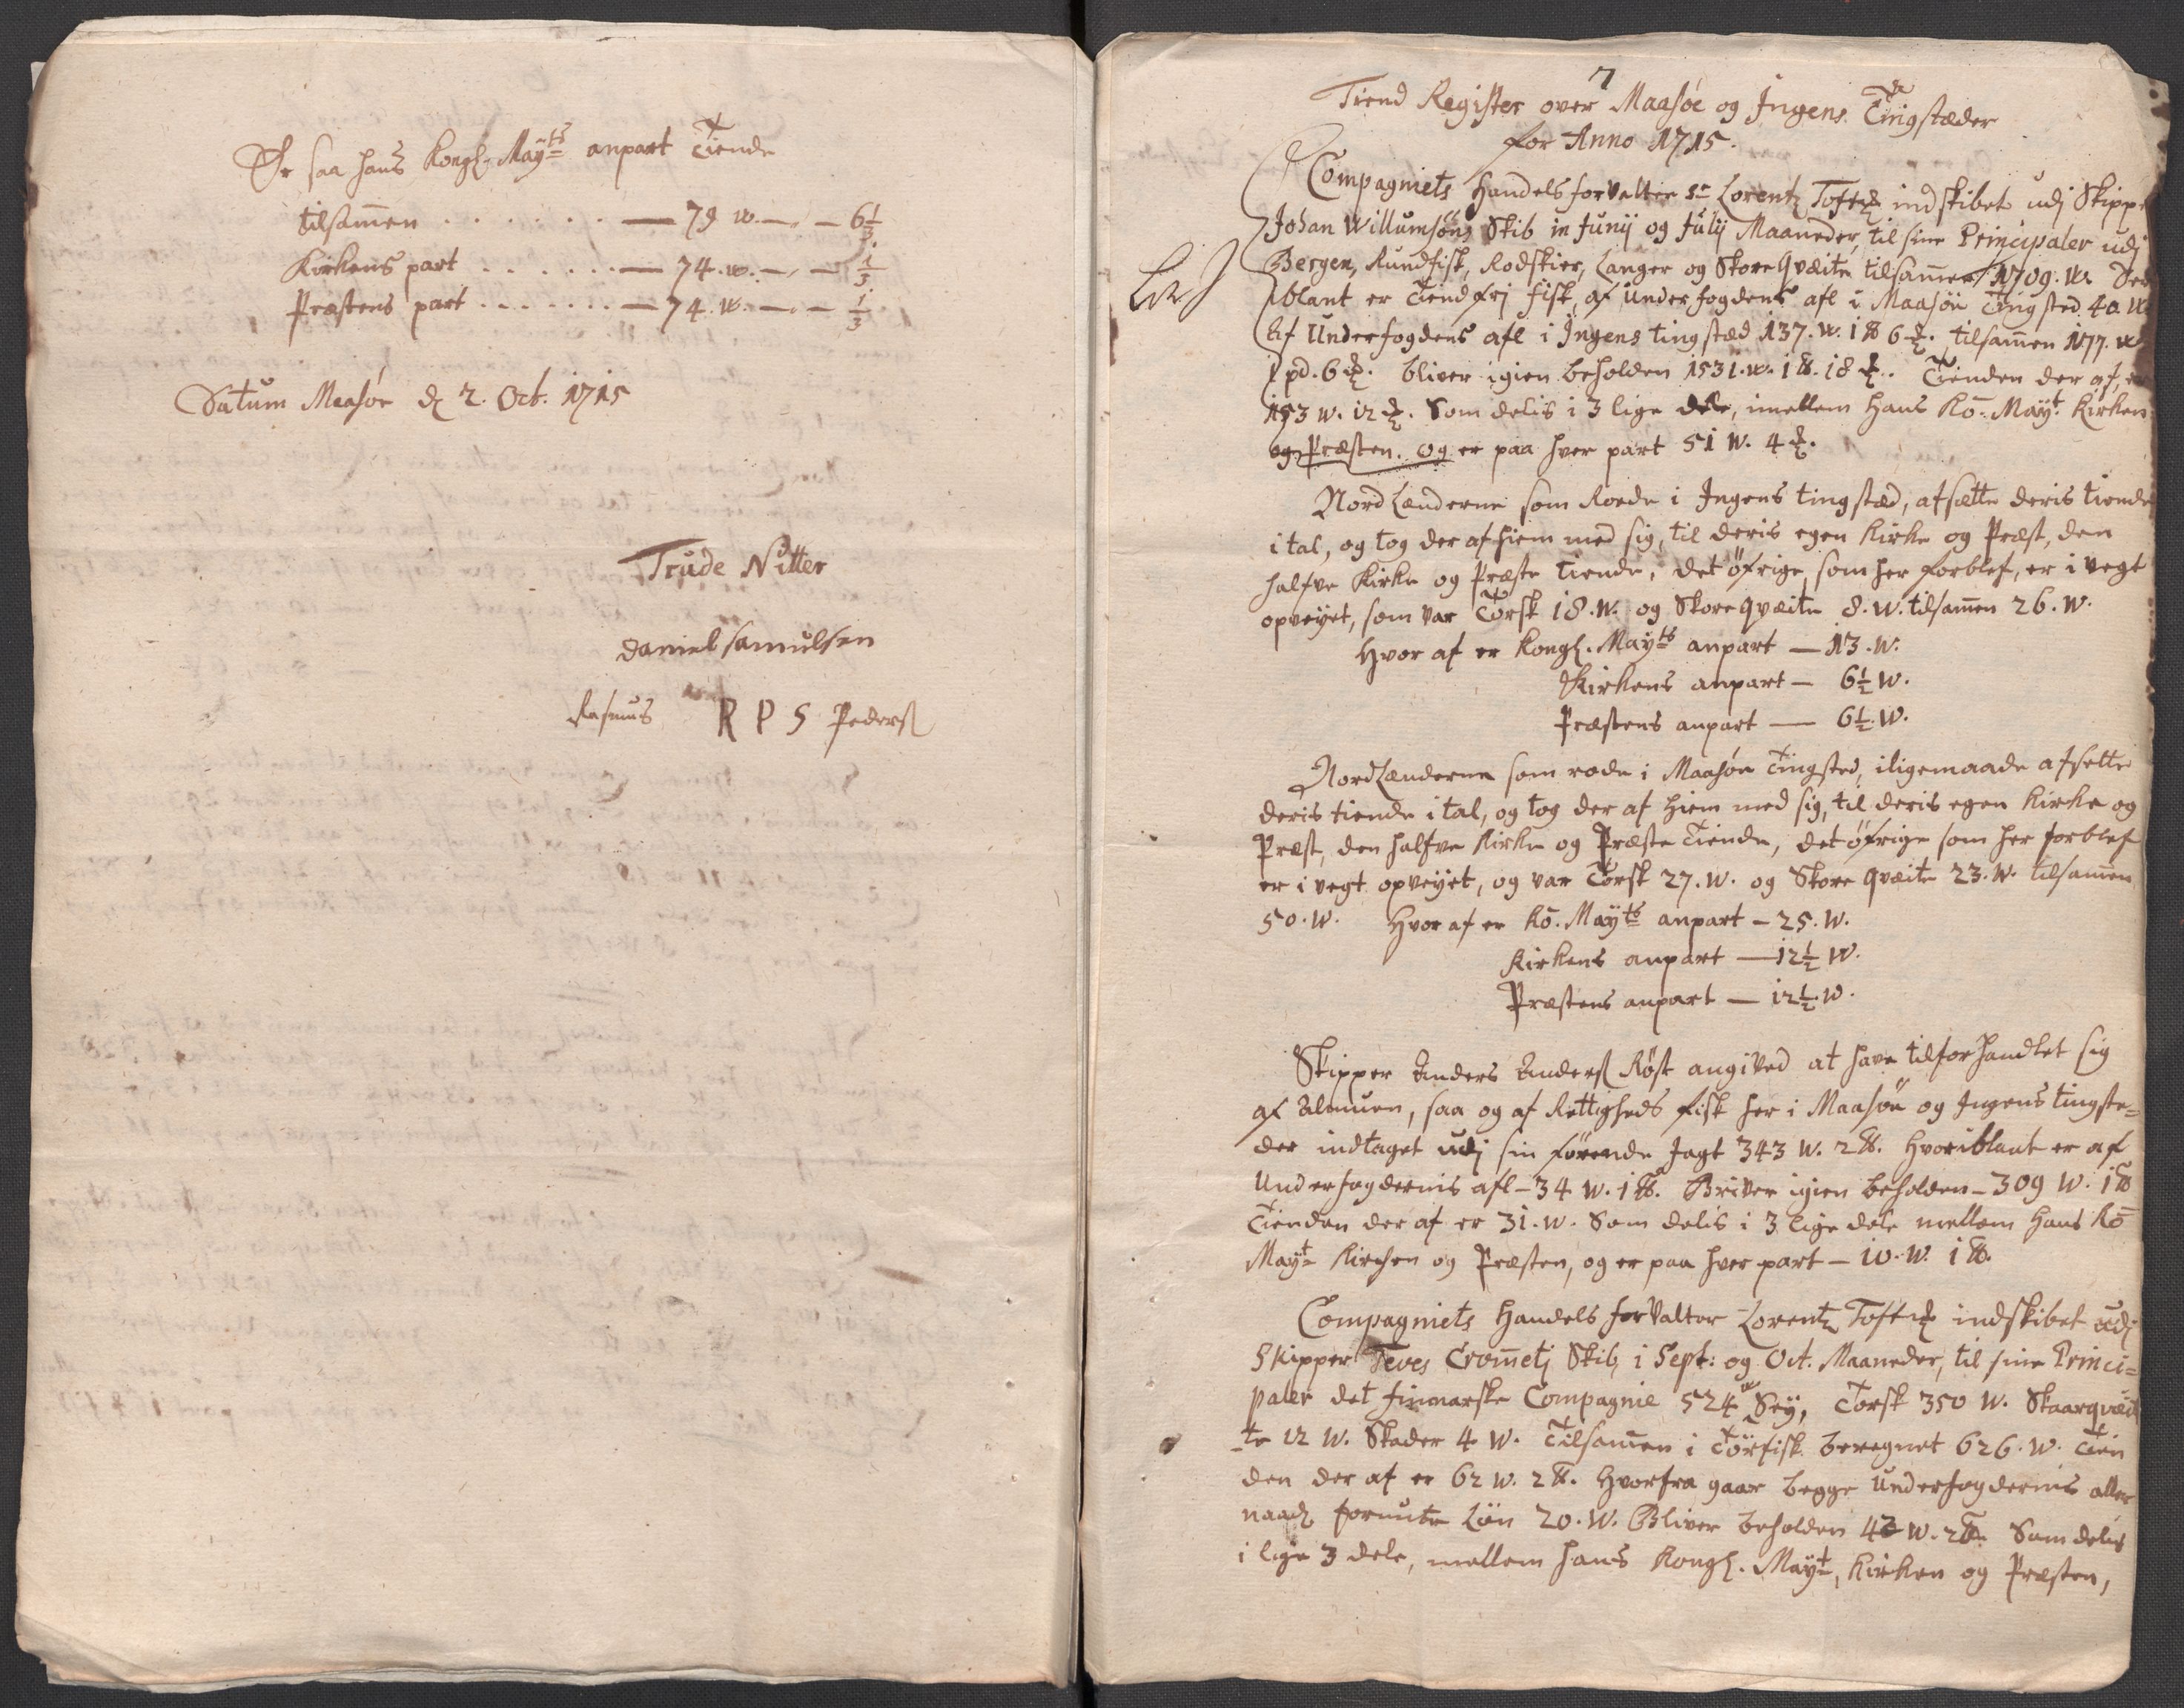 Er saa hans Kongl. Mayts anpart Tiende
tilsammen . . . . . . — 79 w. — „ — 6 1/3
Kirkens part . . . . . . — 74. w. — „ — 1/3
Præstens part . . . . . — 74. w. — „ — 1/3
Datum Maasøe d 2. Oct. 1715
Trude Nitter
Daniel Samulsen
Rasmus R P S Peders
7
Tiend Register over Maasøe og Ingens Tingstæder
for Anno 1715.
Compagniets Handels forvalter Sr Lorentz Toft indskibet udj Skipper
Johan Willumsøns Skib in Junij og Julij Maaneder, til sine Principaler udj
Bergen, Rundfisk, Rodskier, Langer og Skore qvæite tilsammen 1709. w. Der
iblant er tiend frj fisk, af underfogdens afl i Maasøe Tingsted 40 w
Af Underfogdens afl i Ingens tingstæd 137. w. 1 pd 6 . tilsammen 177. w
1 pd. 6 . bliver igien beholden 1531. w. 1 pd. 18 . Tienden der af, er
153 w. 12 . Som delis i 3 lige dele, imellem hans Ko. Mayt. Kirken
og Præsten. og er paa hver part 51 w. 4 .
Nordlænderne som Roede i Ingens tingstæd, afsætte deris tiende
i tal, og tog der af hiem med sig, til deris egen Kirke og Præst, den
halfve Kirke og Præste tiende, det öfrige, som her forblef, er i vegt
opveyet, som var Torsk 18. w. og Skore qvæite 8. w. tilsammen 26. w.
Hvor af er Kongl. Mayts anpart — 13. w.
Kirkens anpart — 6 1/2 w.
Præstens anpart — 6 1/2. w.
Nordlænderne som roede i Maasøe Tingsted, iligemaade afsette
deris tiende i tal, og tog der af hiem med sig, til deris egen Kirke og
Præst, den halfve Kirke og Præste Tiende, det öfrige som her forblef
er i vegt opveyet, og var Torsk 27. w. og Skore qvæite 23. w. tilsammen
50. w. Hvor af er Ko. Mayts anpart — 25. w.
Kirkens anpart — 12 1/2 w.
Præstens anpart — 12 1/2. w.
Skipper Anders Anders Röst angived at have tilforhandlet sig
af Almuen, saa og af Rettigheds fisk her i Maasøe og Ingens tingste=
der indtaget udj sin förende Jagt 343 w. 2 pd. Hvoriblant er af
Underfogdernis afl — 34 w. 1 pd. Bliver igien beholden — 309 w. 1 pd
Tienden der af er 31. w. Som delis i 3 lige dele mellem hans Ko
Mayt Kirchen og Præsten, og er paa hver part — 10. w. 1 pd.
Compagniets Handels forvalter Lorentz Toft indskibet udj
Skipper Teves Crometj Skib, i Sept: og Oct. Maaneder, til sine Princi=
paler det finmarske Compagnie 524 w Sey, Torsk 350 w. Skaarqvæi
te 12 w. Skader 4 w. Tilsammen i Törfisk beregnet 626. w. Tien
den der af er 62 w. 2 pd. Hvorfra gaar begge Underfogdernis aller
naad forunte Lön 20. w. Bliver beholden 42 w. 2 pd. Som delis
i lige 3 dele, mellem hans Kongl. Mayt, Kirken og Præsten,